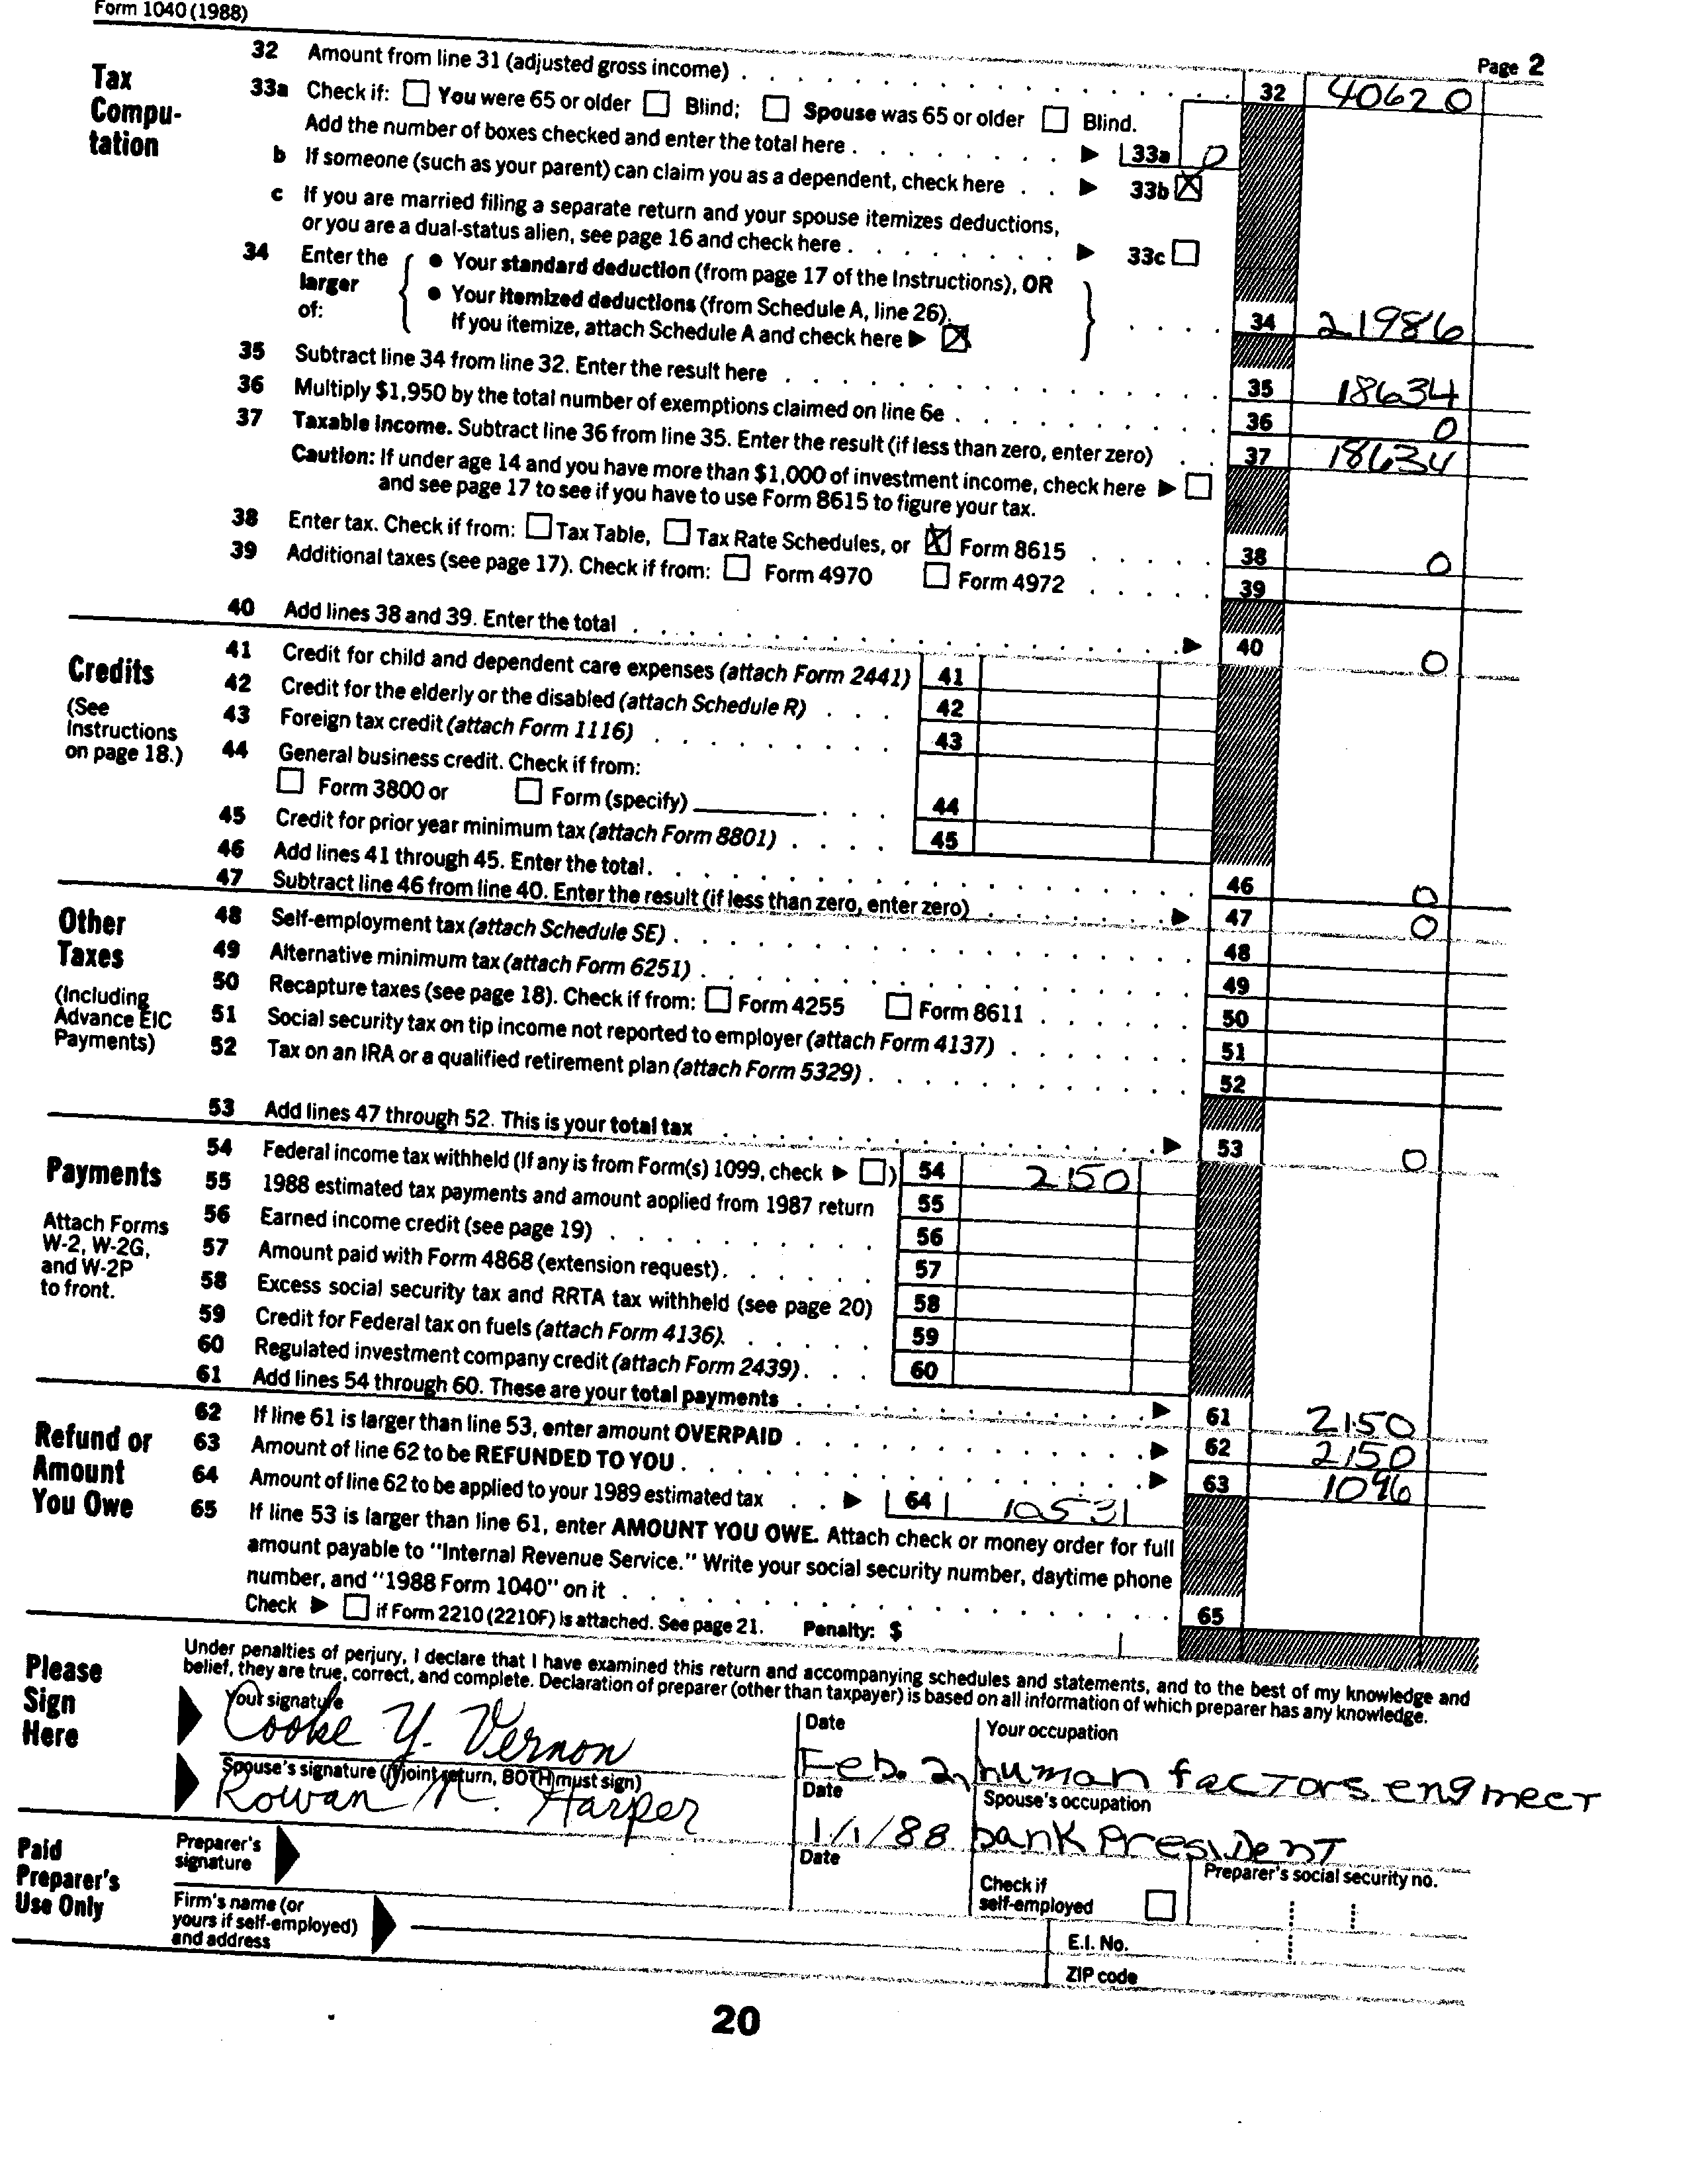 Form 1040 (1988)
Page 2
Tax
Compu-
tation
32 Amount from line 31 (adjusted gross income) . . . . . . . . . . . . . . 32 40620
33a Check if: You were 65 or older Blind; Spouse was 65 or older Blind.
Add the number of boxes checked and enter the total here . . . . . . . . ▶ 33a 0
b If someone (such as your parent) can claim you as a dependent, check here . . ▶ 33b X
c If you are married filing a separate return and your spouse itemizes deductions,
or you are a dual-status alien, see page 16 and check here . . . . . . . . ▶ 33c
34 Enter the larger of:
• Your standard deduction (from page 17 of the Instructions), OR
• Your itemized deductions (from Schedule A, line 26).
If you itemize, attach Schedule A and check here ▶ X . . . . 34 21986
35 Subtract line 34 from line 32. Enter the result here . . . . . . . . . . . . . . 35 18634
36 Multiply $1,950 by the total number of exemptions claimed on line 6e . . . . . . . . . 36 0
37 Taxable income. Subtract line 36 from line 35. Enter the result (if less than zero, enter zero) . . 37 18634
Caution: If under age 14 and you have more than $1,000 of investment income, check here ▶
and see page 17 to see if you have to use Form 8615 to figure your tax.
38 Enter tax. Check if from: Tax Table, Tax Rate Schedules, or X Form 8615 . . . . . 38 0
39 Additional taxes (see page 17). Check if from: Form 4970 Form 4972 . . . . . 39
40 Add lines 38 and 39. Enter the total . . . . . . . . . . . . . . . . . ▶ 40 0
Credits
(See
Instructions
on page 18.)
41 Credit for child and dependent care expenses (attach Form 2441) 41
42 Credit for the elderly or the disabled (attach Schedule R) . . . 42
43 Foreign tax credit (attach Form 1116) . . . . . . . . . 43
44 General business credit. Check if from:
Form 3800 or Form (specify) . . . 44
45 Credit for prior year minimum tax (attach Form 8801) . . . . 45
46 Add lines 41 through 45. Enter the total. . . . . . . . . . . . . . . . . 46 0
47 Subtract line 46 from line 40. Enter the result (if less than zero, enter zero) . . . . . . . ▶ 47 0
Other
Taxes
(Including
Advance EIC
Payments)
48 Self-employment tax (attach Schedule SE) . . . . . . . . . . . . . . . . 48
49 Alternative minimum tax (attach Form 6251) . . . . . . . . . . . . . . . 49
50 Recapture taxes (see page 18). Check if from: Form 4255 Form 8611 . . . . . . 50
51 Social security tax on tip income not reported to employer (attach Form 4137) . . . . . . . 51
52 Tax on an IRA or a qualified retirement plan (attach Form 5329) . . . . . . . . . . . 52
53 Add lines 47 through 52. This is your total tax . . . . . . . . . . . . . . ▶ 53 0
Payments
Attach Forms
W-2, W-2G,
and W-2P
to front.
54 Federal income tax withheld (If any is from Form(s) 1099, check ▶ ) 54 2150
55 1988 estimated tax payments and amount applied from 1987 return 55
56 Earned income credit (see page 19) . . . . . . . . . . 56
57 Amount paid with Form 4868 (extension request) . . . . . . 57
58 Excess social security tax and RRTA tax withheld (see page 20) 58
59 Credit for Federal tax on fuels (attach Form 4136). . . . . . 59
60 Regulated investment company credit (attach Form 2439) . . . 60
61 Add lines 54 through 60. These are your total payments . . . . . . . . . . . ▶ 61 2150
Refund or
Amount
You Owe
62 If line 61 is larger than line 53, enter amount OVERPAID . . . . . . . . . . . ▶ 62 2150
63 Amount of line 62 to be REFUNDED TO YOU . . . . . . . . . . . . . . ▶ 63 1096
64 Amount of line 62 to be applied to your 1989 estimated tax . . ▶ 64 10531
65 If line 53 is larger than line 61, enter AMOUNT YOU OWE. Attach check or money order for full
amount payable to "Internal Revenue Service." Write your social security number, daytime phone
number, and "1988 Form 1040" on it . . . . . . . . . . . . . . . . . 65
Check ▶ if Form 2210 (2210F) is attached. See page 21. Penalty: $
Please
Sign
Here
Under penalties of perjury, I declare that I have examined this return and accompanying schedules and statements, and to the best of my knowledge and
belief, they are true, correct, and complete. Declaration of preparer (other than taxpayer) is based on all information of which preparer has any knowledge.
Your signature Date Your occupation
Cooke Y. Vernon Feb. 2, human factors engineer
Spouse's signature (if joint return, BOTH must sign) Date Spouse's occupation
Rowan N. Harper 1/1/88 bank President
Paid
Preparer's
Use Only
Preparer's
signature
Date
Check if
self-employed
Preparer's social security no.
Firm's name (or
yours if self-employed)
and address
E.I. No.
ZIP code
20